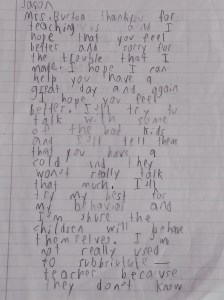 Jason
Mrs. Burton thankyou for
teaching us and I
hope that you feel
better and sorry for
the trouble that I
made. I hope I can
help you have a
great day and again
I hope you feel
better. I'll try to
talk with some
of the bad kids
and I'll tell them
that you have a
cold and they
won't really talk
that much. I'll
try my best for
my behavior and
I'm shure the
children will behave
themselves. I'm
not really used
to subsitute
teacher because
they don't know